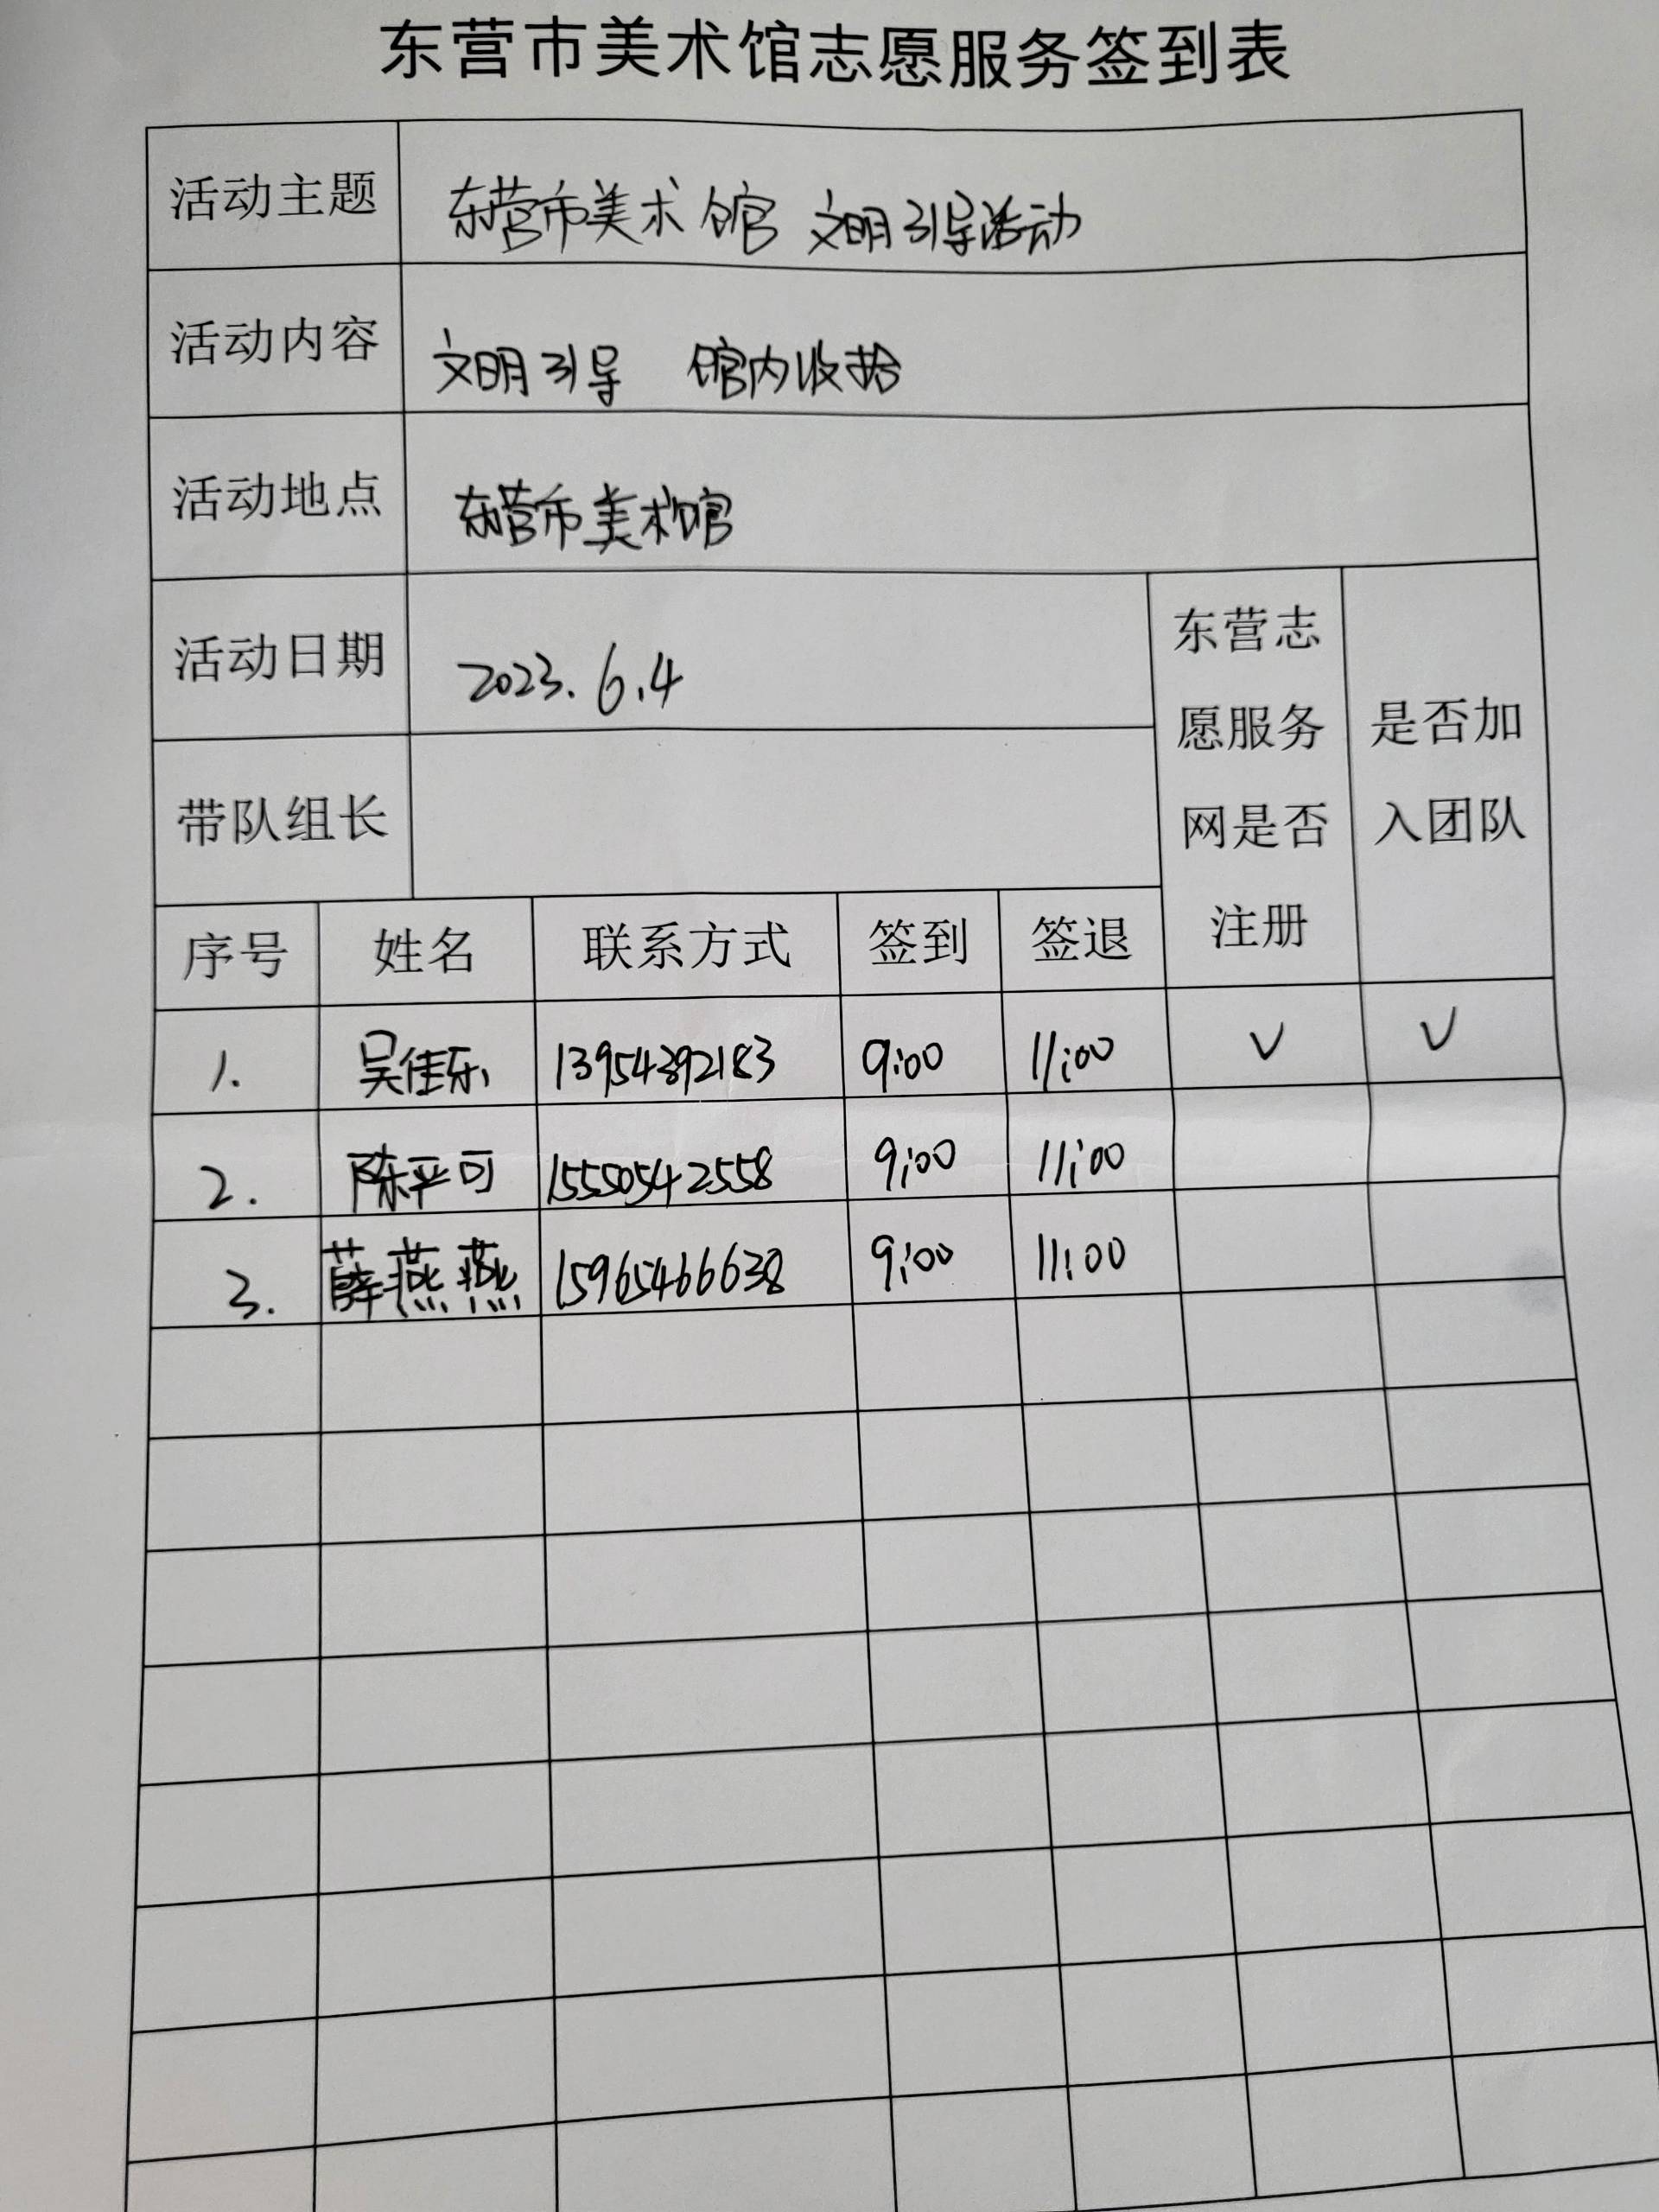 东营市美术馆志愿服务签到表
活动主题 东营市美术馆 文明引导活动
活动内容 文明引导 馆内收拾
活动地点 东营市美术馆
活动日期 2023.6.4
东营志愿服务网是否注册
是否加入团队
带队组长
序号 姓名 联系方式 签到 签退
1. 吴佳乐 13954392183 9:00 11:00 √ √
2. 陈平可 15550542558 9:00 11:00
3. 薛燕燕 15965466638 9:00 11:00